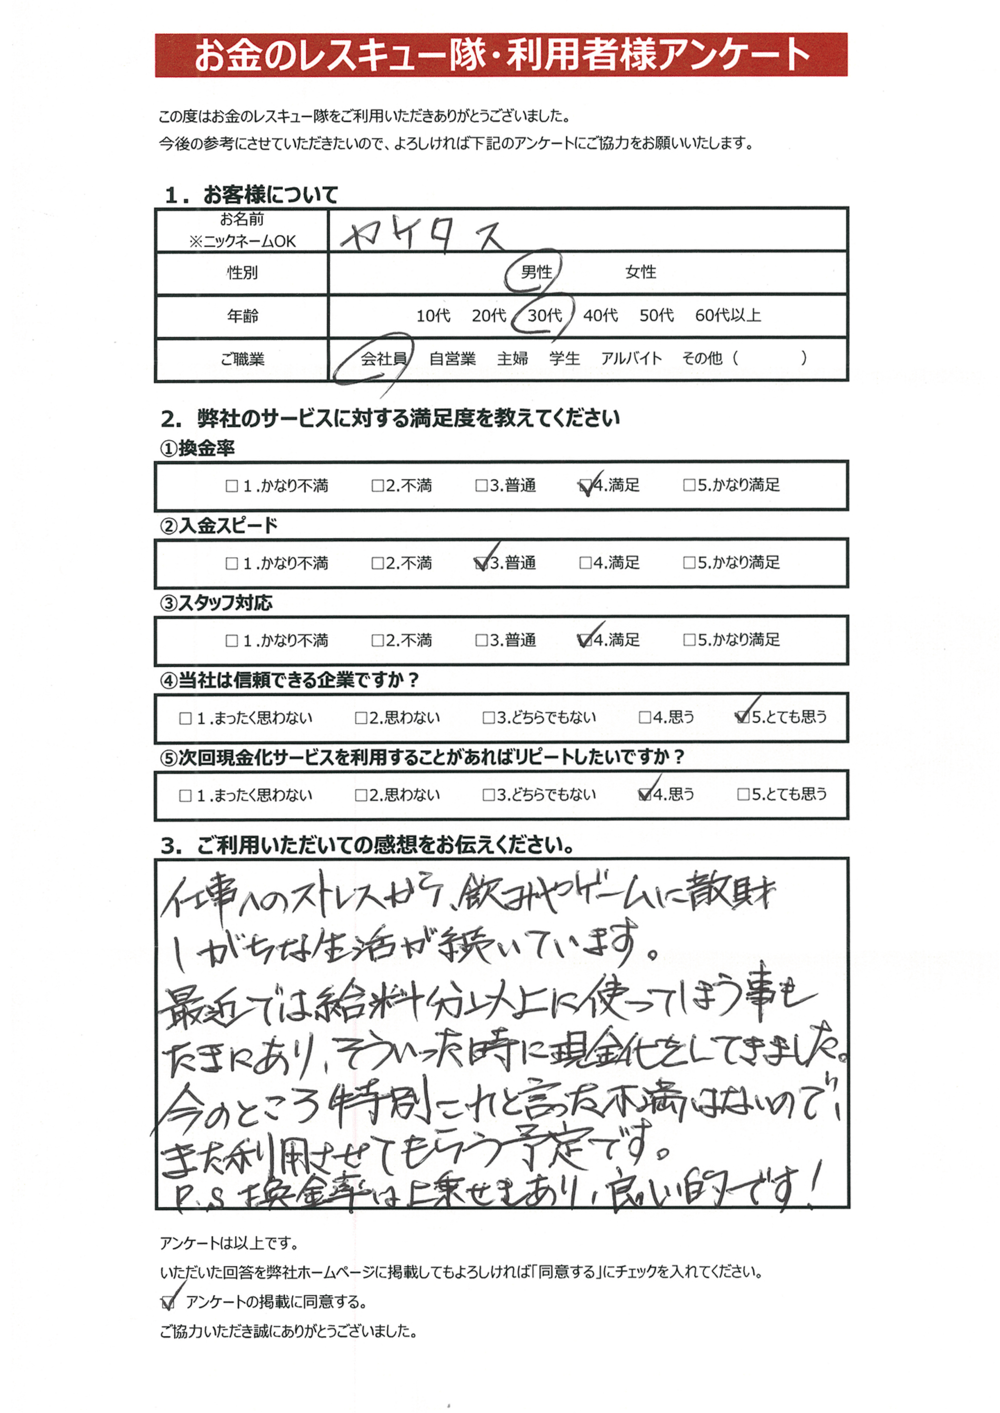 お金のレスキュー隊・利用者様アンケート
この度はお金のレスキュー隊をご利用いただきありがとうございました。
今後の参考にさせていただきたいので、よろしければ下記のアンケートにご協力をお願いいたします。
1．お客様について
お名前
※ニックネームOK
ヤイタス
性別 男性 女性
年齢 10代 20代 30代 40代 50代 60代以上
ご職業 会社員 自営業 主婦 学生 アルバイト その他（ ）
2．弊社のサービスに対する満足度を教えてください
①換金率
□1.かなり不満 □2.不満 □3.普通 ☑4.満足 □5.かなり満足
②入金スピード
□1.かなり不満 □2.不満 ☑3.普通 □4.満足 □5.かなり満足
③スタッフ対応
□1.かなり不満 □2.不満 □3.普通 ☑4.満足 □5.かなり満足
④当社は信頼できる企業ですか？
□1.まったく思わない □2.思わない □3.どちらでもない □4.思う ☑5.とても思う
⑤次回現金化サービスを利用することがあればリピートしたいですか？
□1.まったく思わない □2.思わない □3.どちらでもない ☑4.思う □5.とても思う
3．ご利用いただいての感想をお伝えください。
仕事へのストレスから、飲みやゲームに散財
しがちな生活が続いています。
最近では給料分以上に使ってしまう事も
たまにあり、そういった時に現金化をしてきました。
今のところ特別これと言った不満はないので、
また利用させてもらう予定です。
P.S 換金率は上乗せもあり、良い的です！
アンケートは以上です。
いただいた回答を弊社ホームページに掲載してもよろしければ「同意する」にチェックを入れてください。
☑ アンケートの掲載に同意する。
ご協力いただき誠にありがとうございました。